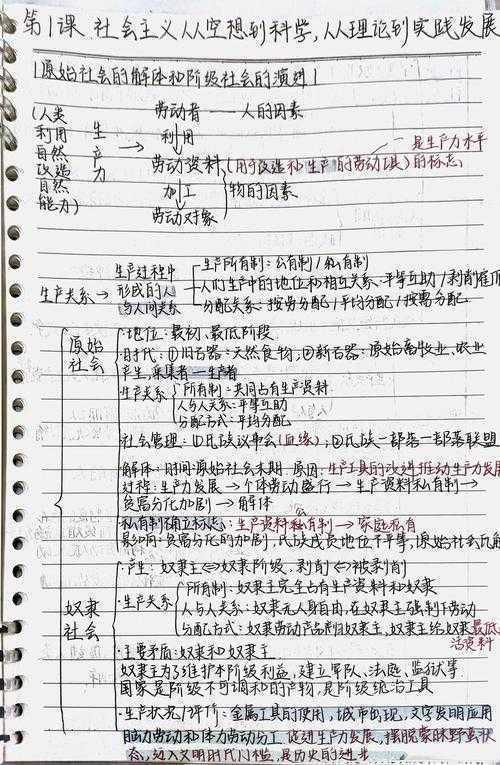 第1课 社会主义从空想到科学,从理论到实践发展
1原始社会的解体和阶级社会的演进1
(人类利用自然改造自然能力)
生产力 →
劳动者——人的因素
利用
劳动资料(用于改造和生产的劳动工具)的标志
是生产力水平
加工
物的因素
劳动对象
生产关系→ 生产过程中形成的人与人间关系
生产所有制:公有制/私有制
人们生产中的地位和相互关系:平等互助/剥削雇
分配关系:按劳分配/平均分配/按需分配
原始社会
·地位:最初、最低阶段
·时代:①旧石器:天然食物;②新石器:原始畜牧业、农业
产生,采集者—生产者
·生产关系
所有制:共同占有生产资料
人与人关系:平等互助
分配方式:平均分配
社会管理:①氏族议事会(血缘);②氏族—部落—部落联盟
解体:时间:原始社会末期 原因:生产工具的改进推动生产力发展
过程:生产力发展→个体劳动盛行→生产资料私有制→
贫富分化加剧→解体
私有制确立标志:生产资料私有制→家庭私有
影响:贫富分化的加剧,氏族成员地位不平等,原始社会瓦解
奴隶社会
·产生:奴隶主⇔奴隶阶级,剥削⇔被剥削
·生产关系
所有制:奴隶主完全占有生产资料和奴隶
人与人关系:奴隶无人身自由,在奴隶主强制下劳动
分配方式:奴隶劳动产品归奴隶主,奴隶主给奴隶最低
活资料
·主要矛盾:奴隶和奴隶主
奴隶主为了维护本阶级利益,建立军队、法庭、监狱等
国家是阶级不可调和的产物,是阶级统治工具
·生产状况/评价:金属工具的使用,城市出现,文字发明应用
脑力劳动和体力劳动分工,促进生产发展,摆脱蒙昧野蛮状
态,迈入文明时代门槛,是历史的进步